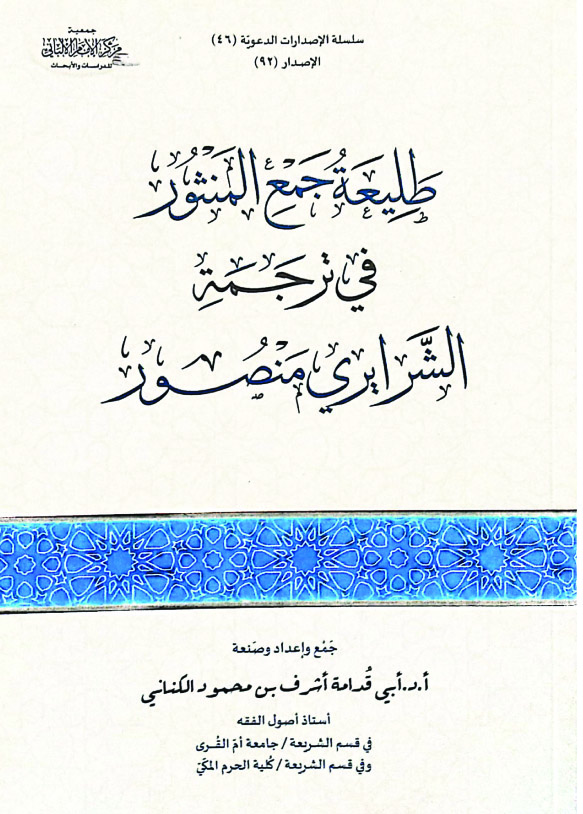 جمعية
مركز الإمام الألباني
للدراسات والأبحاث
سلسلة الإصدارات الدعوية (٤٦)
الإصدار (٩٢)
طَلِيعَةُ جَمْعِ المَنْثُورِ
في تَرجَمَةِ
الشَّرايري مَنْصُور
جَمْع وإعداد وصَنعة
أ.د.أبي قُدامة أشرف بن محمود الكناني
أستاذ أصول الفقه
في قسم الشريعة / جامعة أمّ القُرى
وفي قسم الشريعة / كُلية الحرم المكيّ